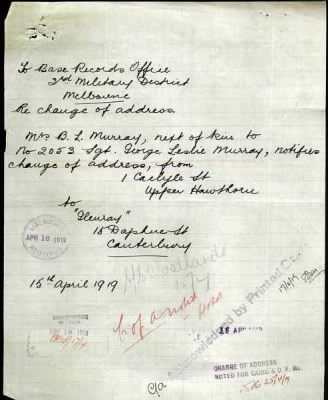 To Base Records Office
3rd Military District
Melbourne
Re change of address.
Mrs B. L. Murray, next of kin to
No 2053 Sgt. George Leslie Murray, notifies
change of address, from
1 Carlyle St
Upper Hawthorn
to
"Glenray"
18 Daphne St
Canterbury
15th April 1919
APR 16 1919
C/- of A noted
Acknowledged by Printed C
17/4/19
16 APR 1919
CHANGE OF ADDRESS
NOTED FOR CARDS & D.P. Ms.
C/a